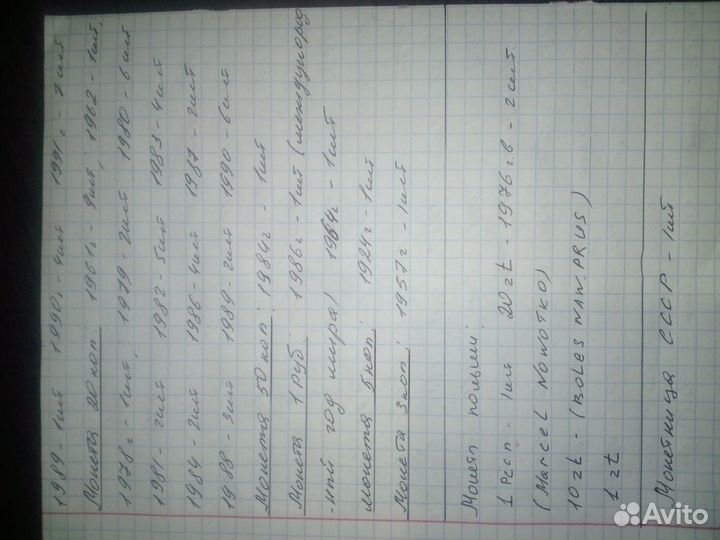 1989 - 1шт 1990г - 4шт 1991г - 2шт
Монета 20 коп: 1961г - 9шт, 1962 - 1шт.
1978г - 1шт, 1979 - 2шт 1980 - 6шт
1981 - 2шт 1982 - 5шт 1983 - 4шт
1984 - 2шт 1986 - 4шт 1987 - 2шт
1988 - 3шт 1989 - 2шт 1990 - 6шт
Монета 50 коп: 1984г - 1шт
Монета 1 руб: 1986г - 1шт (международ
-ный год мира) 1964г - 1шт
монета 5коп: 1924г - 1шт
Монета 3коп: 1957г - 1шт
Монеты польши:
1 - 1шт 20 zł - 1976г.в - 2шт
(Marcel NOWOTKO)
10 zł - (BOLESŁAW PRUS)
1 zł
Монетница СССР - 1шт
Avito